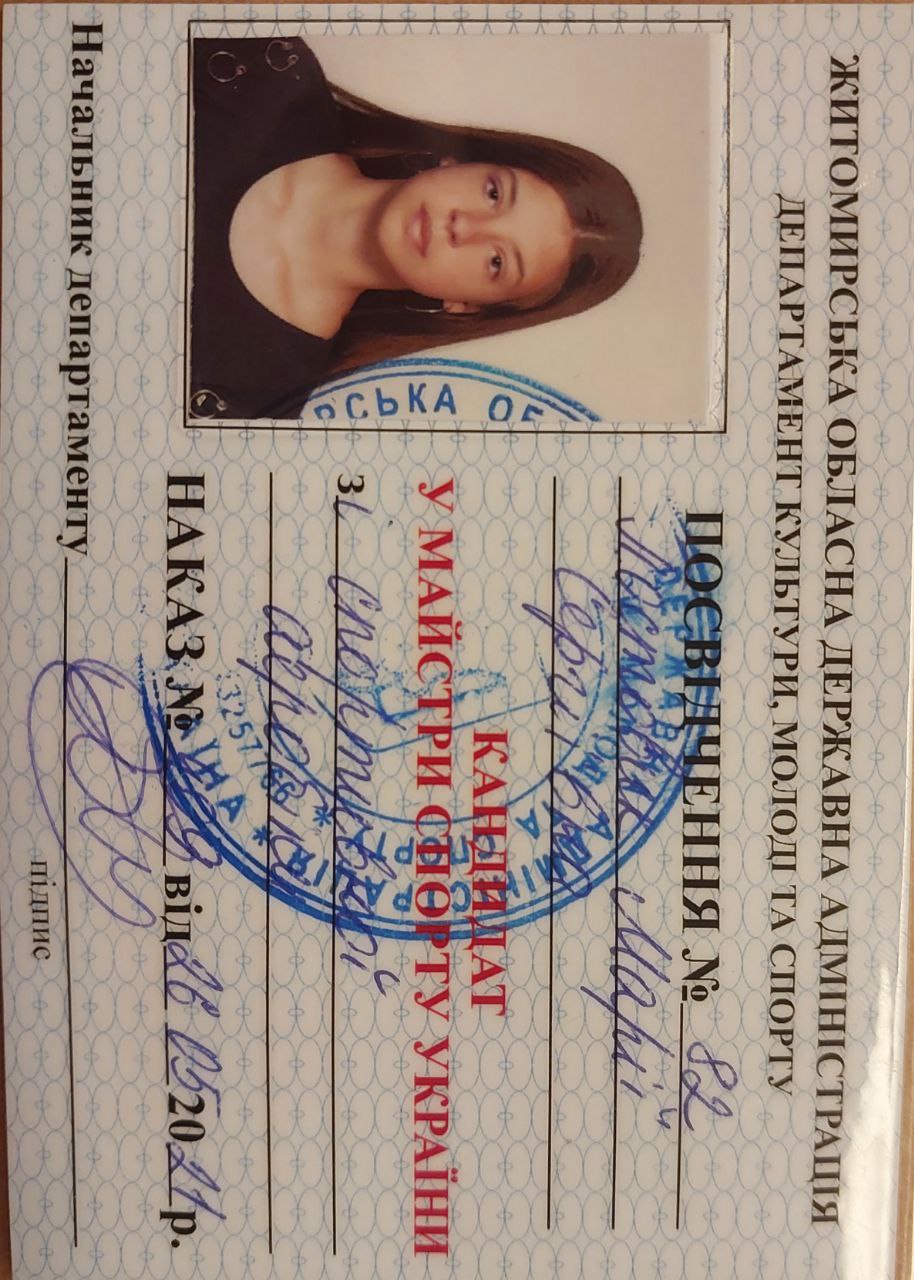 ЖИТОМИРСЬКА ОБЛАСНА ДЕРЖАВНА АДМІНІСТРАЦІЯ
ДЕПАРТАМЕНТ КУЛЬТУРИ, МОЛОДІ ТА СПОРТУ
ПОСВІДЧЕННЯ № 82
Марії
Сергіївна
КАНДИДАТ
У МАЙСТРИ СПОРТУ УКРАЇНИ
зі спортивної
аеробіки
НАКАЗ № від 26 05 2021 р.
Начальник департаменту
підпис